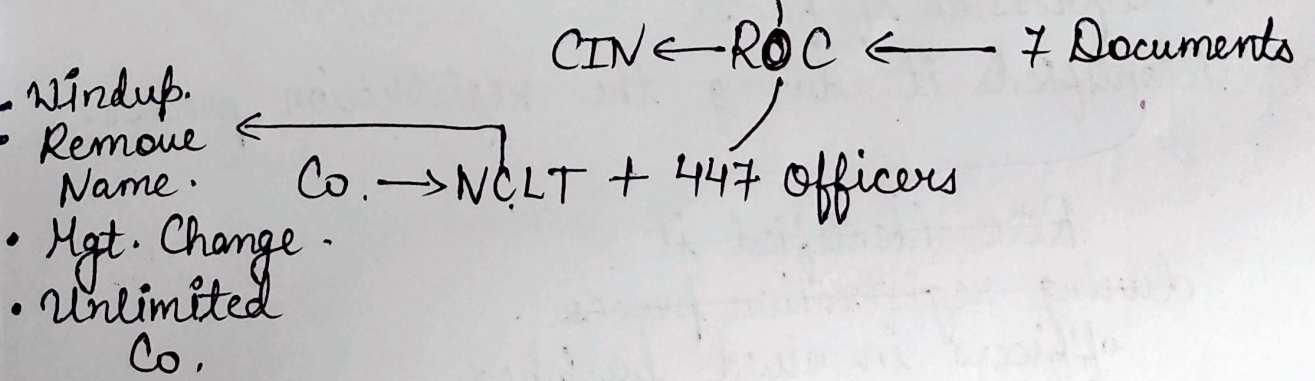 CIN ← ROC ← 7 Documents
- Windup.
• Remove
Name.
Co. → NCLT + 447 Officers
• Mgt. Change.
• Unlimited
Co.